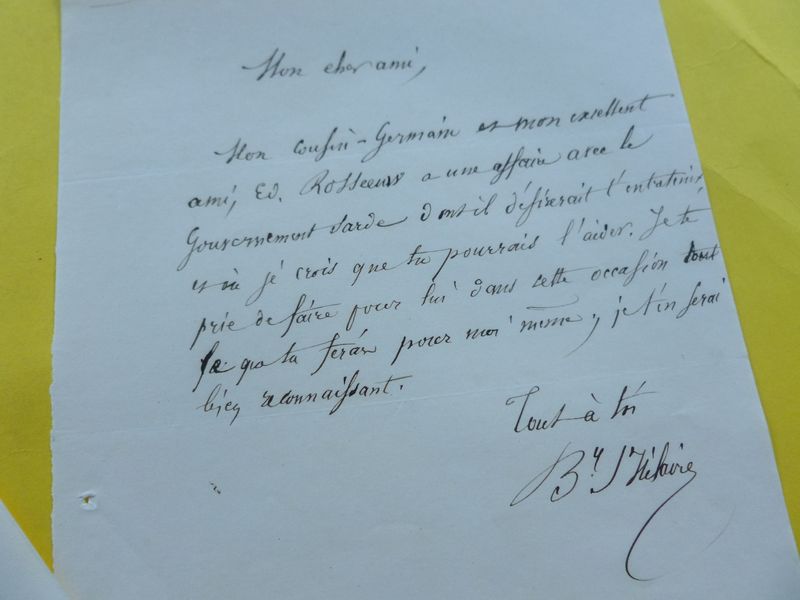 Mon cher ami,
Mon cousin-Germain et mon excellent
ami, Ed. Rosseeuw a une affaire avec le
Gouvernement Sarde dont il désirerait t'entretenir
et où je crois que tu pourrais l'aider. Je te
prie de faire pour lui dans cette occasion tout
ce que tu feras pour moi même, je t'en serai
bien reconnaissant.
Tout à toi
B.y St Hilaire